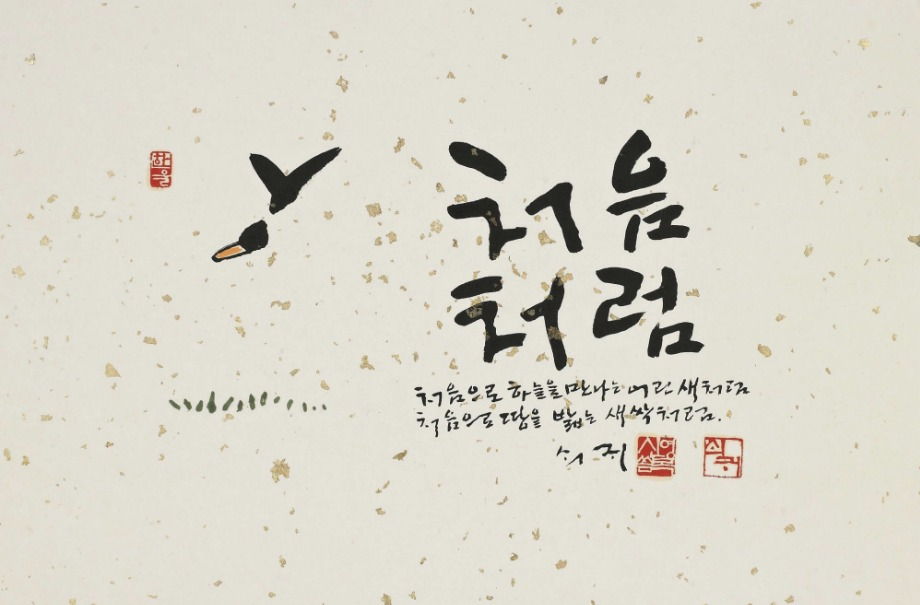 처음
처럼
처음으로 하늘을 만나는 어린 새처럼
처음으로 땅을 밟는 새싹처럼.
쇠귀